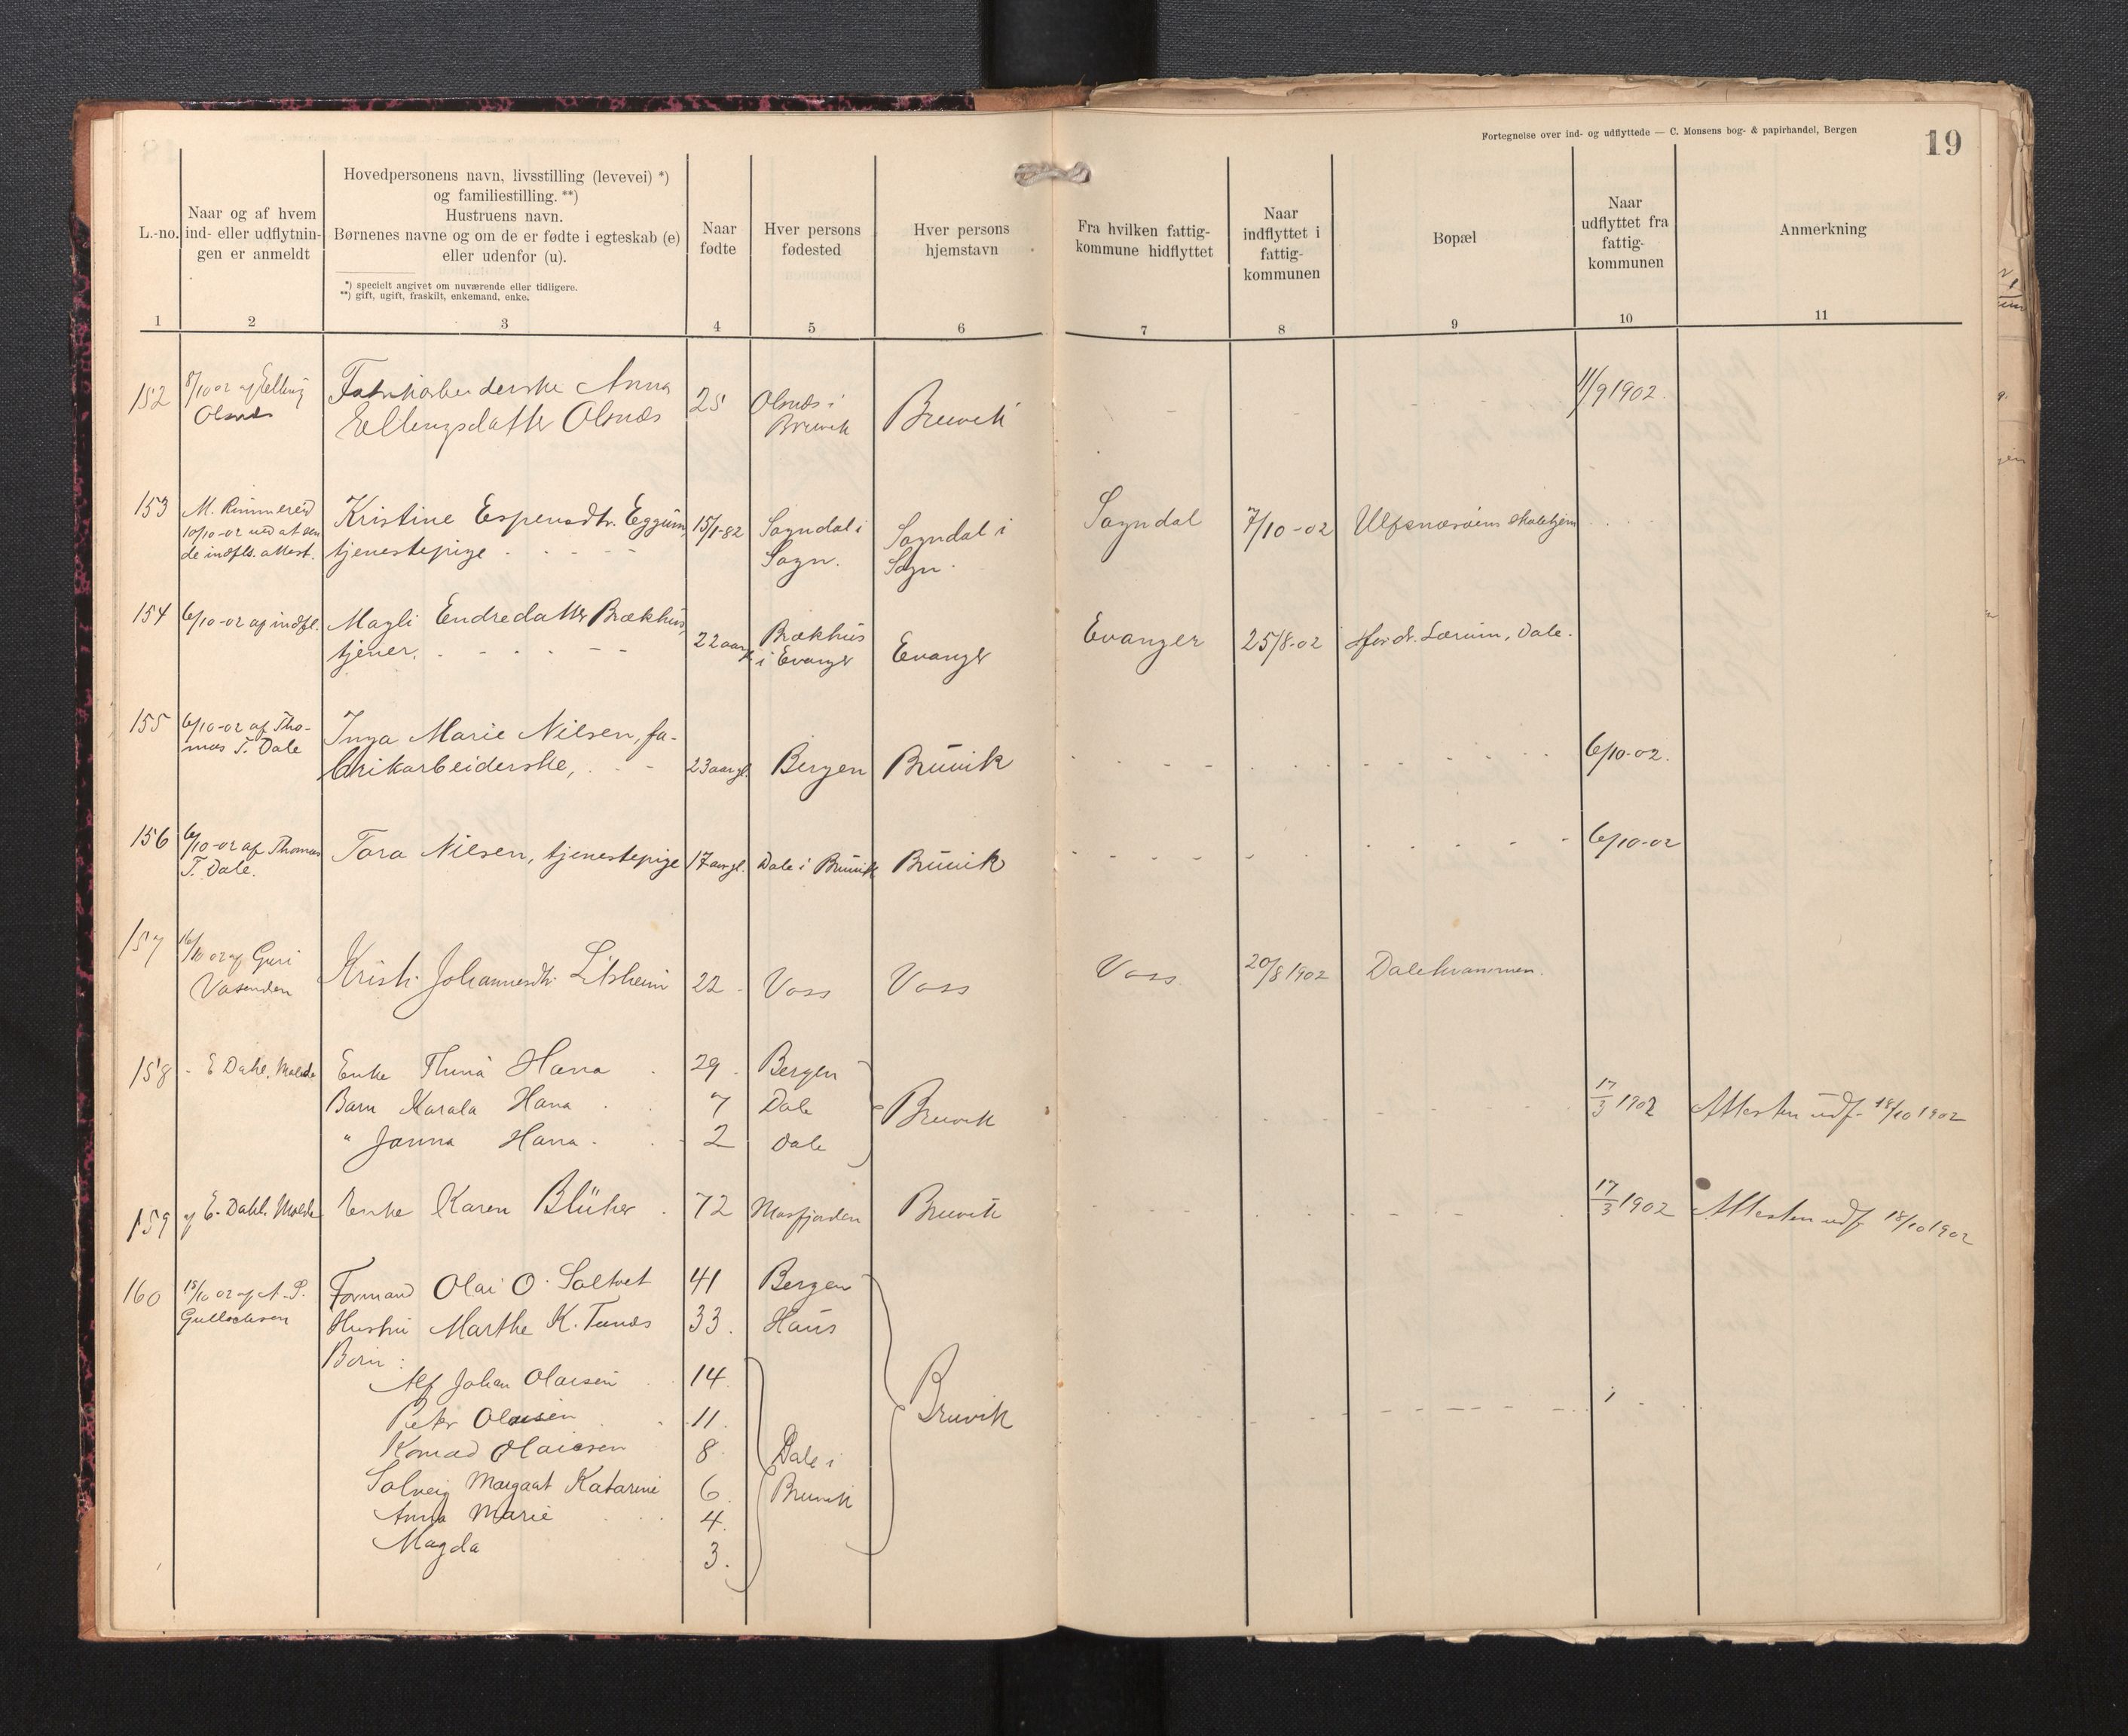 Fortegnelse over ind- og udflyttede — C. Monsens bog- & papirhandel, Bergen
19
L.-no.
Naar og af hvem
ind- eller udflytnin-
gen er anmeldt
Hovedpersonens navn, livsstilling (levevei) *)
og familiestilling. **)
Hustruens navn.
Børnenes navne og om de er fødte i egteskab (e)
eller udenfor (u).
*) specielt angivet om nuværende eller tidligere.
**) gift, ugift, fraskilt, enkemand, enke.
Naar
fødte
Hver persons
fødested
Hver persons
hjemstavn
Fra hvilken fattig-
kommune hidflyttet
Naar
indflyttet i
fattig-
kommunen
Bopæl
Naar
udflyttet fra
fattig-
kommunen
Anmerkning
1 2 3 4 5 6 7 8 9 10 11
152 8/10 02 af Elling Fabrikarbeiderske Anna 25 Olsnæs i Bruvik 11/9 1902.
Olsnæs Ellingsdatter Olsnæs Bruvik
153 M. Rimmereid Kristine Espensdtr. Eggum, 15/1-82 Sogndal i Sogndal i Sogndal 7/10-02 Ulfsnæsøens skolehjem
10/10-02 ved at sen tjenestepige Sogn. Sogn.
de indfl. attest.
154 6/10-02 af indfl. Magli Endredatter Brækhus, 22 aar gl. Brækhus Evanger Evanger 25/8-02 hos dr. Lærum, Dale.
tjener. i Evanger
155 6/10-02 af Tho- Inga Marie Nilsen, fa- 6/10-02.
mas T. Dale brikarbeiderske, 23 aar gl. Bergen Bruvik
156 6/10-02 af Thomas Tora Nilsen, tjenestepige 17 aar gl. Dale i Bruvik Bruvik 6/10-02
T. Dale.
157 16/10 02 af Guri Krist. Johannesdtr. Litsheim 22 Voss Voss Voss 20/8 1902 Dalekvammen.
Vasenden
158 - E Dahl. Molde Enke Hana 29 Bergen Bruvik 17/3 1902 Attesten udf. 18/10 1902
Barn Karala Hana 7 Dale
" Janna Hana 2 Dale
159 af E. Dahl. Molde Enke Karen Blüher 72 Masfjorden Bruvik 17/3 1902 Attesten udf 18/10 1902
160 15/10 02 af A. P. Formand Olai O. Soltvet 41 Bergen
Gullachsen Hustru Marthe K. Tunæs 33. Haus
Børn:
Alf Johan Olaisen 14.
Peter Olaisen 11. Bruvik
Konrad Olaisen 8. Dale i
Solveig Margaat Katarine 6. Bruvik
Anna Marie 4.
Magda 3.